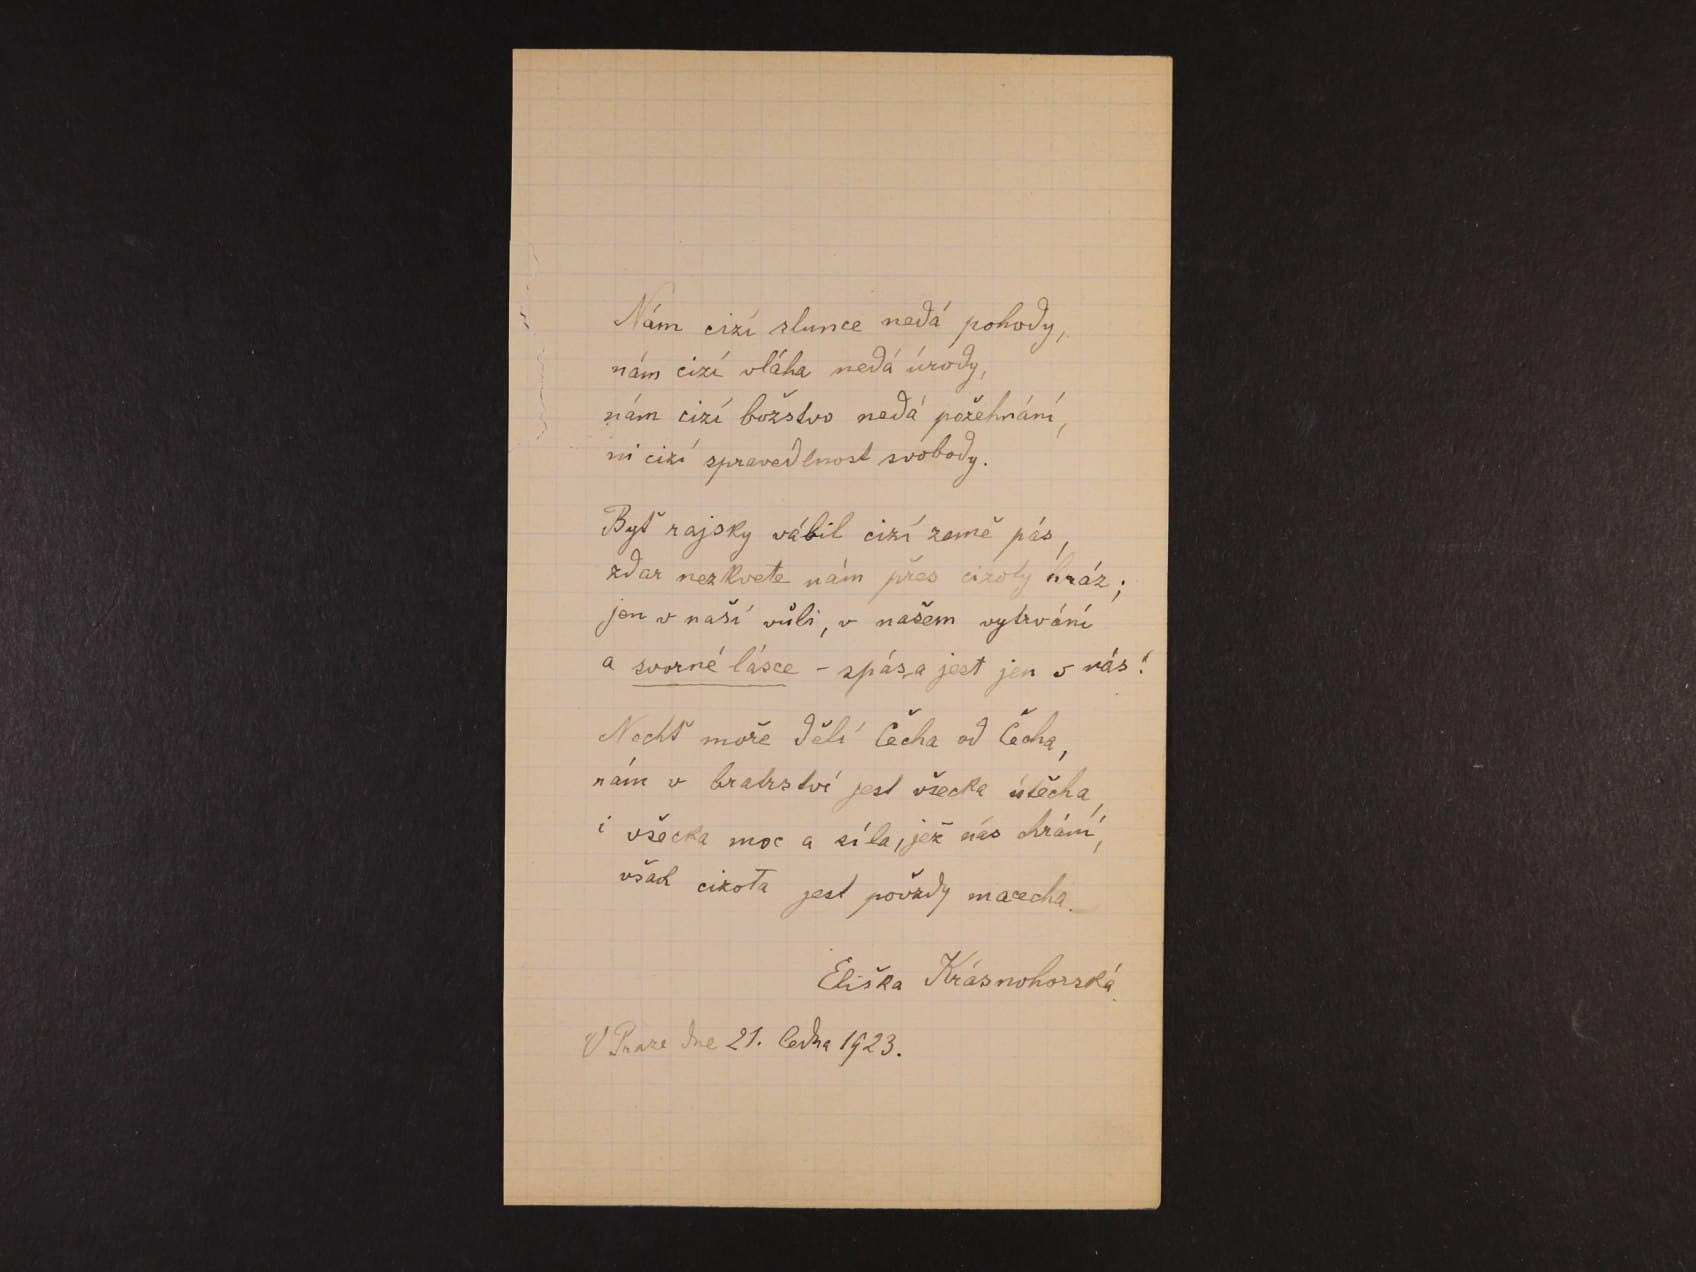 Nám cizí slunce nedá pohody,
nám cizí vláha nedá úrody,
nám cizí božstvo nedá požehnání,
ni cizí spravedlnost svobody.
Byť rajsky vábil cizí země pás,
zdar nezkvete nám přes cizoty hráz;
jen v naší vůli, v našem vytrvání
a svorné lásce – spása jest jen v nás!
Nechť moře dělí Čecha od Čecha,
nám v bratrství jest všecka útěcha,
i všecka moc a síla, jež nás chrání,
však cizota jest povždy macecha.
Eliška Krásnohorská.
V Praze dne 21. ledna 1923.